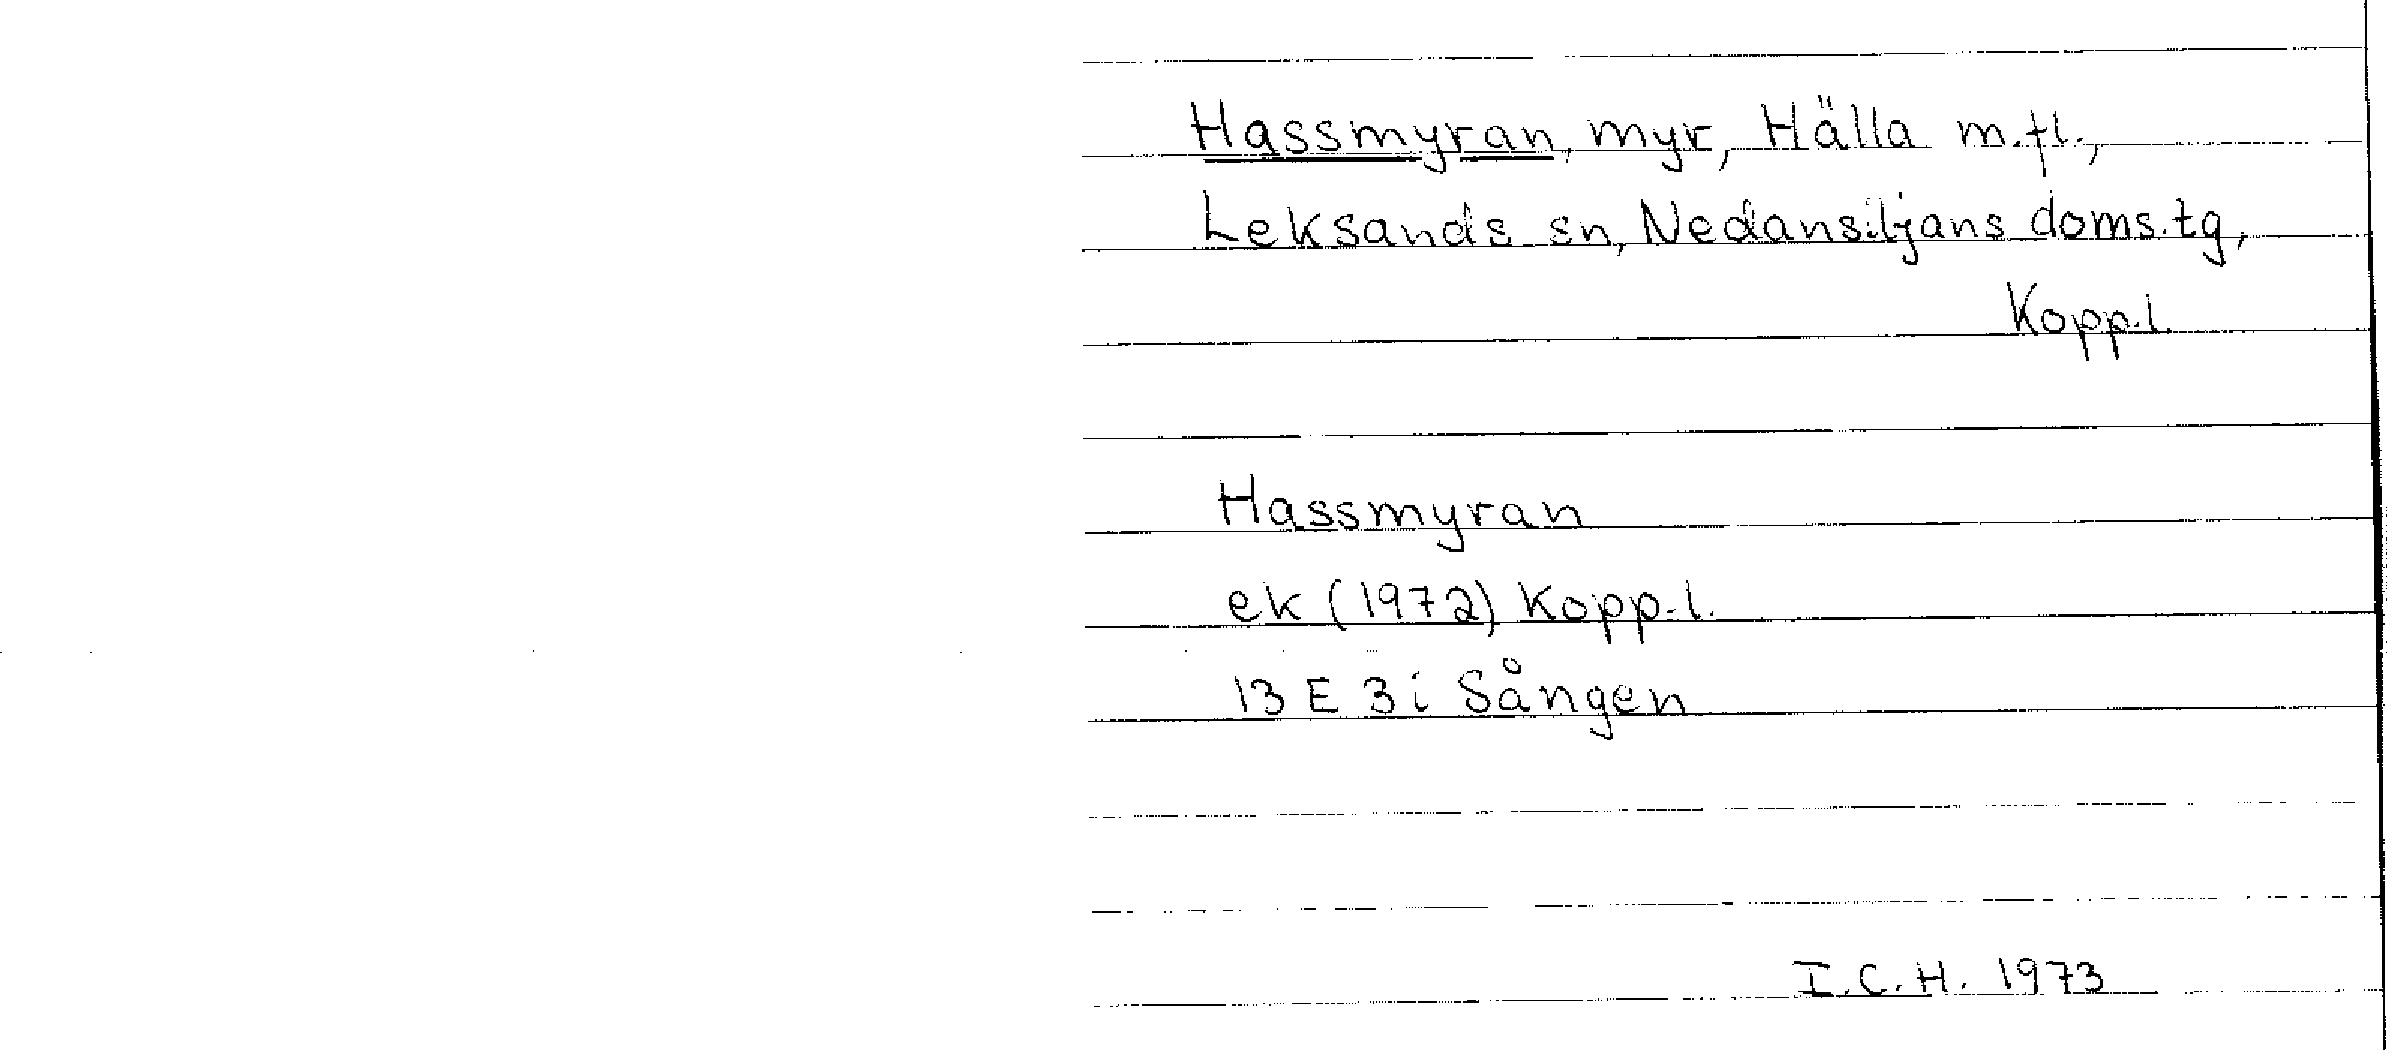 Hassmyran, myr, Hälla m.fl.,
Leksands sn, Nedansiljans doms.tg,
Kopp.l.
Hassmyran
ek (1972) Kopp.l.
13 E 3i Sången
I.C.H. 1973